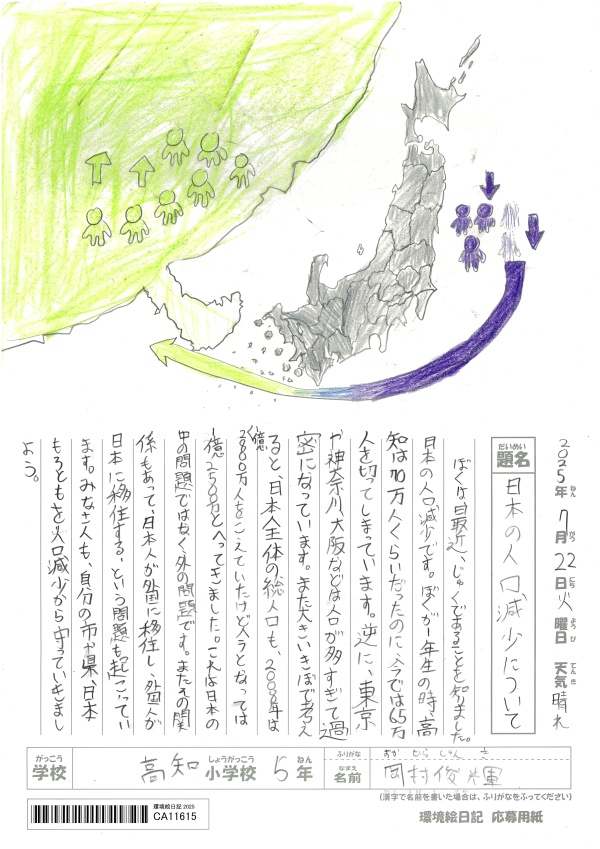 2025年ねん 7月がつ 22日にち 火曜日ようび 天気てんき 晴れ
題名だいめい 日本の人口減少について
ぼくは最近、じゅくであることを知りました。
日本の人口減少です。ぼくが1年生の時、高
知は70万人くらいだったのに、今では65万
人を切ってしまっています。逆に、東京
や神奈川、大阪などは人口が多すぎて過
密になっています。また大きいきぼで考え
ると、日本全体の総人口も、2008年は1億
2800万人をこえていたけど今となっては
1億2500万とへってきました。これは日本の
中の問題ではなく、外の問題です。またその関
係もあって、日本人が外国に移住し、外国人が
日本に移住する、という問題も起こってい
ます。みなさんも、自分の市や県、日本
もろともを人口減少から守っていきまし
ょう。
がっこう 学校 高知 しょうがっこう 小学校 5 ねん 年
ふりがな おかむらしゅんき
なまえ 名前 岡村俊輝
(漢字で名前を書いた場合は、ふりがなをふってください)
環境絵日記2025
CA11615
環境絵日記 応募用紙